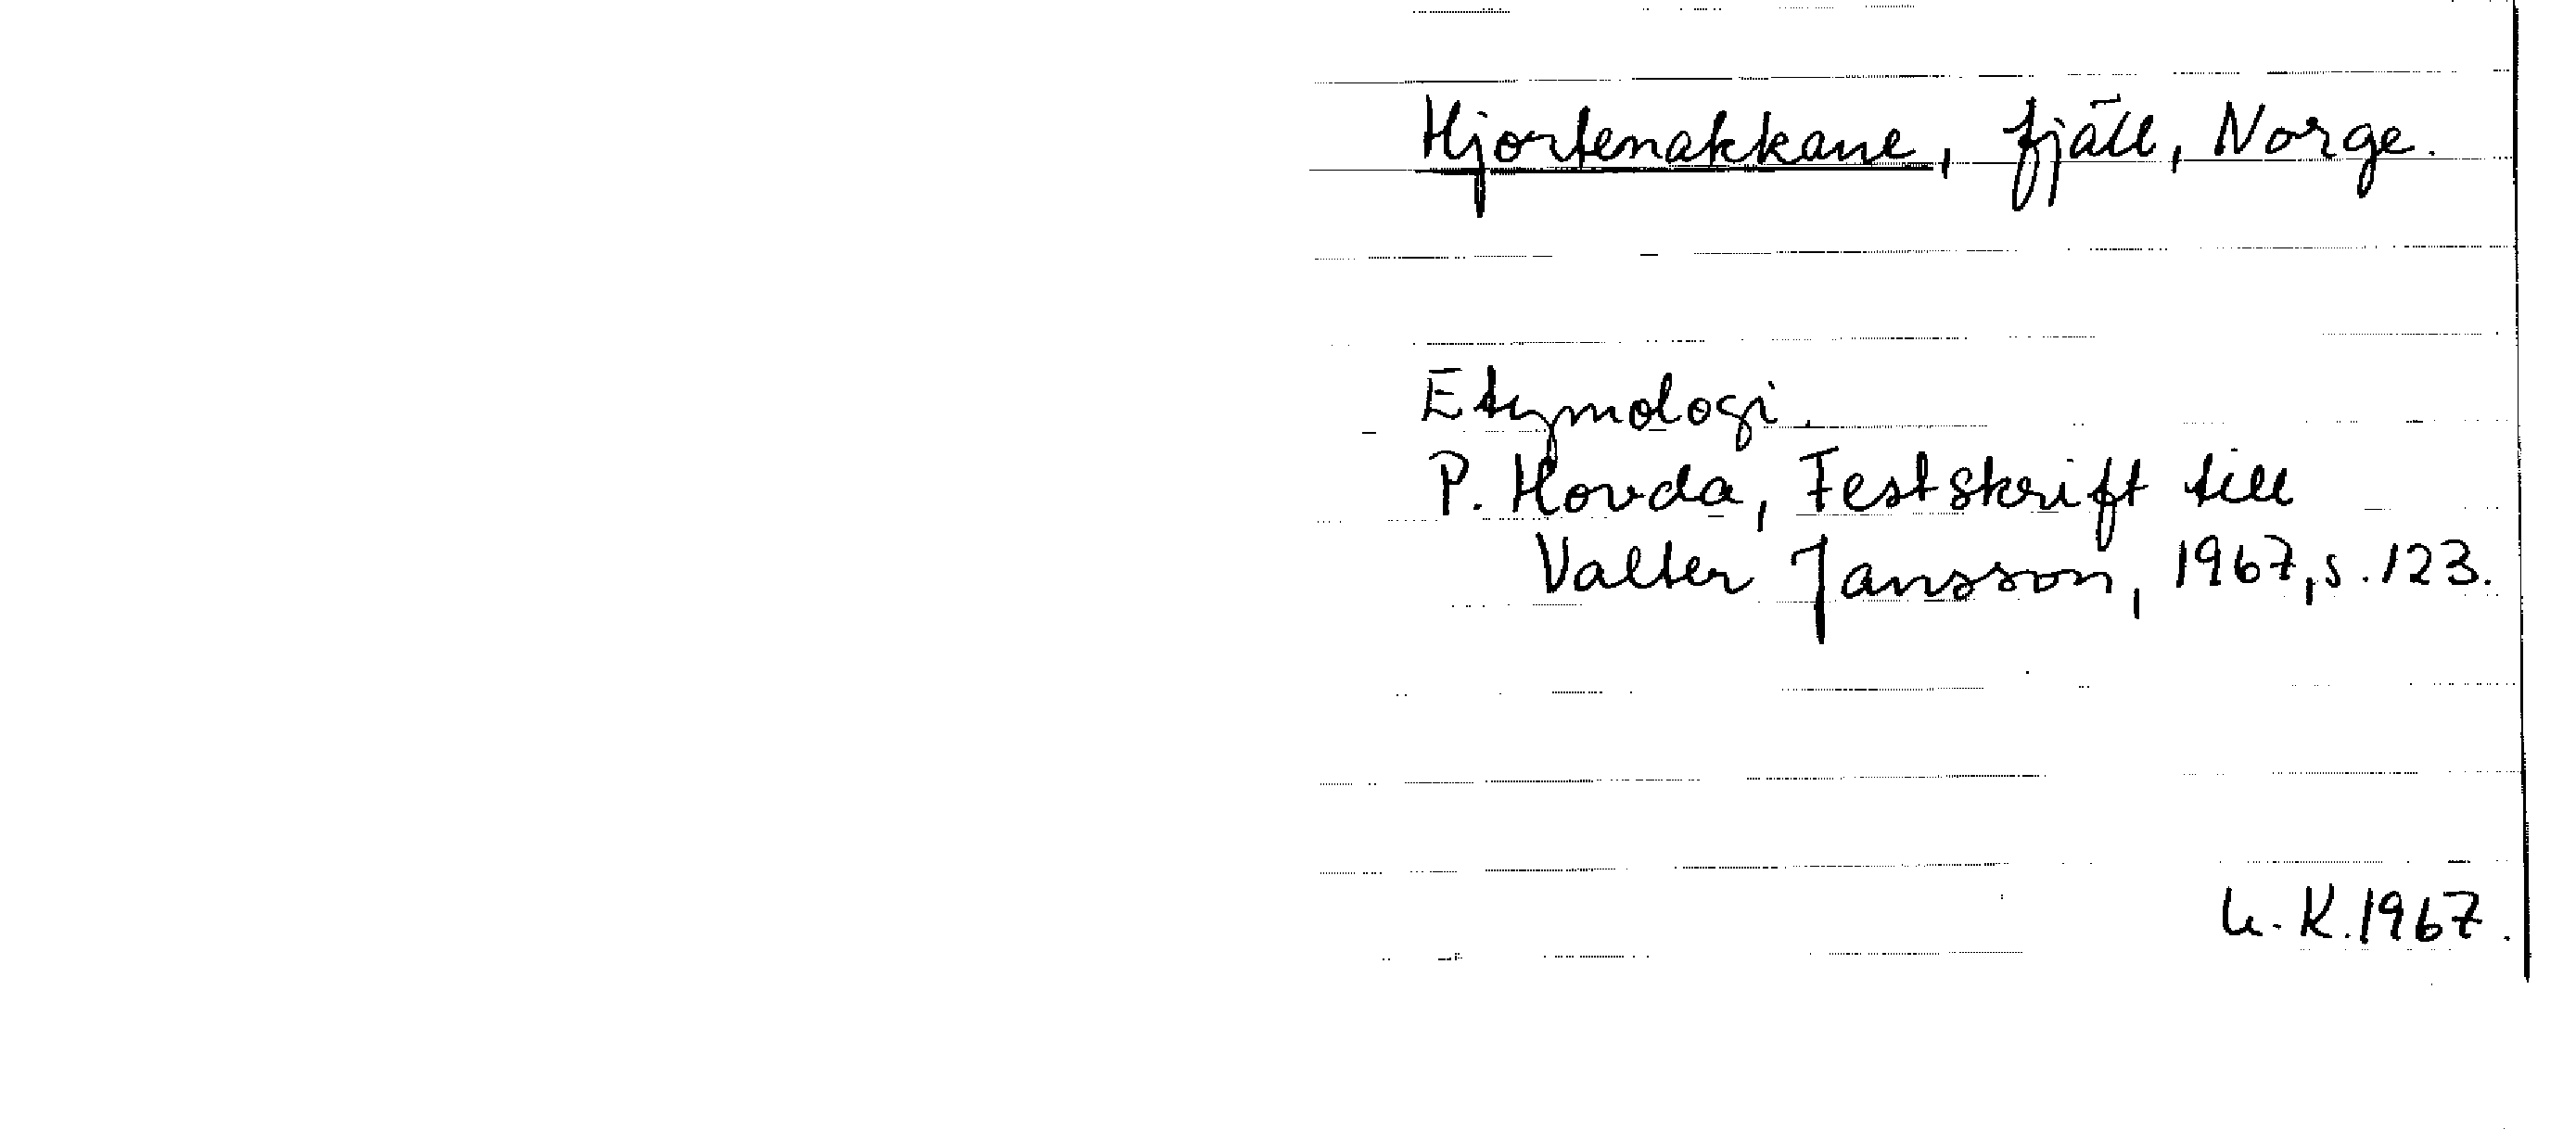 Hjortenakkane, fjäll, Norge.
Etymologi.
P. Hovda, Festskrift till
Valter Jansson, 1967, s. 123.
K. 1967.